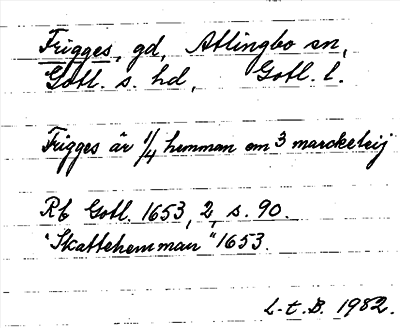 Frigges, gd, Atlingbo sn,
Gotl. s. hd, Gotl. l.
Frigges är 1/4 hemman em 3 marckeleij
Rb Gotl. 1653, 2, s. 90.
"Skattehemman" 1653.
L-t.B. 1982.